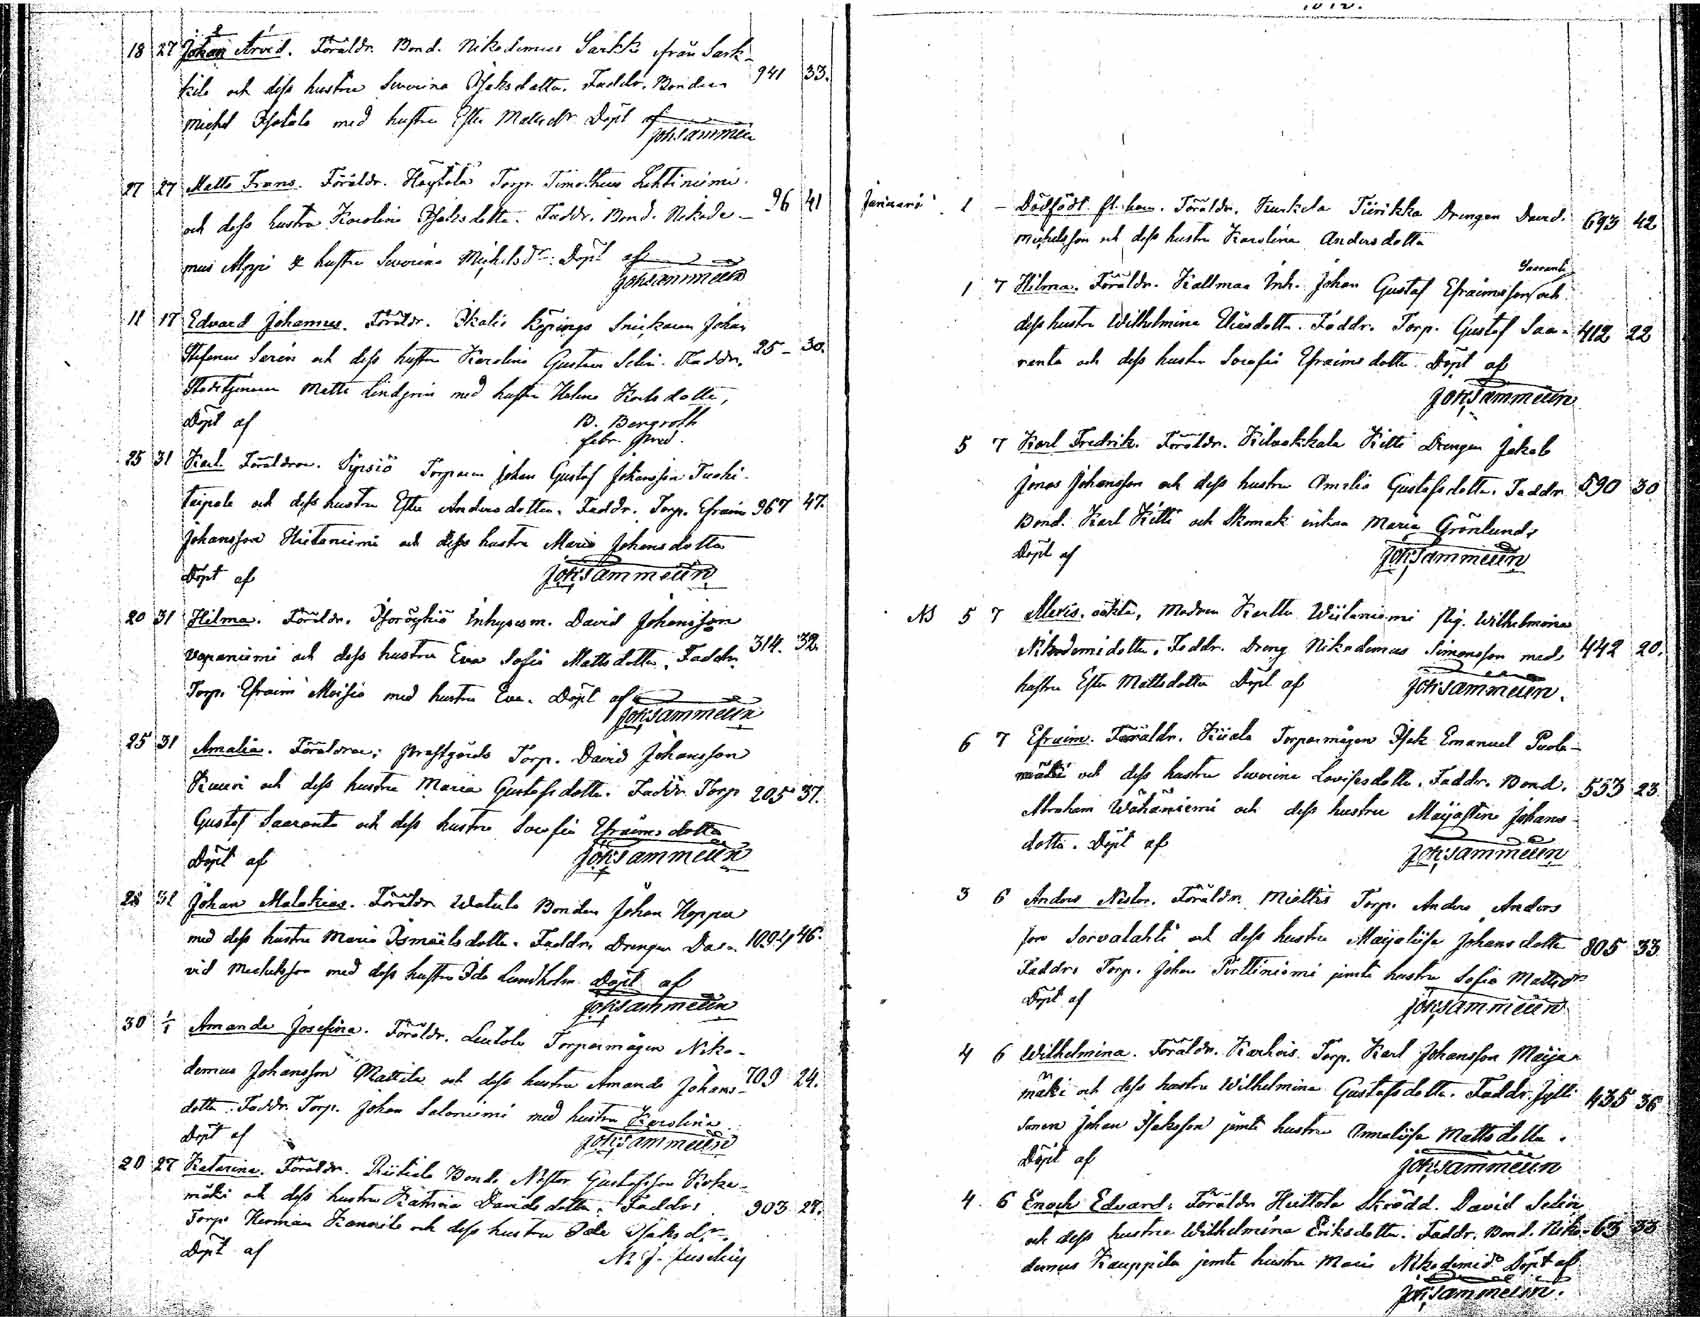 18 27 Johan Arvid. Föräldr. Bond. Nikodemus Sarkki ifrån Sark-
kila och dess hustru Severina Isaksdotter. Faddr. Bonden 941 33.
Michel Isotalo med hustru Ester Mattsdr. Döpt af
Joh: Sammelin
27 27 Matts Frans. Föräldr. Torp. Timotheus Lehtiniemi
och dess hustru Karolina Isaksdotter. Faddr. Bond. Nikode- 96 41
mus & hustru Severina Michelsdr. Döpt af
Joh: Sammelin
11 17 Edvard Johannes. Föräldr. Ikalis Köpings Snickaren Johan
Stefanus Serén och dess hustru Karolina Gustava Selin. Faddr. 25 30.
Matts Lindgren med hustru Helena Karlsdotter,
Döpt af B. Bergroth
25 31 Karl. Föräldrar. Sipsiö Torparen Johan Gustaf Johansson Tuohi-
taipale och dess hustru Ester Andersdotter. Faddr. Torp. Efraim 967 47.
Johansson Hietaniemi och dess hustru Maria Johansdotter
Döpt af Joh: Sammelin
20 31 Hilma. Föräldr. Isoröyhiö Inhysesm. David Johansson
Vapaniemi och dess hustru Eva Sofia Mattsdotter. Faddr. 314. 32.
Torp. Efraim Moisio med hustru Eva. Döpt af
Joh: Sammelin
25 31 Amalia. Föräldrar: Prestgårds Torp. David Johansson
Kuusi och dess hustru Maria Gustafsdotter. Faddr. Torp 205 37.
Gustaf Saarento och dess hustru Sofia Efraimsdotter
Döpt af Joh: Sammelin
28 31 Johan Malakias. Föräldr. Watula Bonden Johan Hoppu
med dess hustru Maria Ismaelsdotter. Faddr. Drengen Da- 1094 46.
vid Michelsson med dess hustru Ida Lundholm. Döpt af
Joh: Sammelin
30 1/1 Amanda Josefina. Föräldr. Leutola Torparmågen Niko-
demus Johansson Mattila och dess hustru Amanda Johans- 709 24.
dotter. Faddr. Torp. Johan Saloniemi med hustru Karolina.
Döpt af Joh: Sammelin
20 27 Katarina. Föräldr. Riitiala Bonde Nestor Gustafsson Koke-
mäki och dess hustru Katrina Davidsdotter. Faddr: 903 27.
Torp: Herman Kannisto och dess hustru Ida Isaksdr.
Döpt af
1872.
Januari 1 – Dödfödt Föräldr. Kurkela Tiirikka Drengen David 693 42
Michelsson och dess hustru Karolina Andersdotter
Saarento
1 7 Hilma. Föräldr. Kallmaa Inh. Johan Gustaf Efraimsson och
dess hustru Wilhelmina Eliædotter. Faddr. Torp. Gustaf Saa- 412 22
rento och dess hustru Sofia Efraimsdotter. Döpt af
Joh: Sammelin
5 7 Karl Fredrik. Föräldr. Kilvakkala Kitti Drengen Jakob
Jonas Johansson och dess hustru Amalia Gustafsdotter. Faddr. 590 30
Bond. Karl Kitti och Skomak. enkan Maria Grönlund,
Döpt af Joh: Sammelin
5 7 Alexis. oäkta, Modren Karttu Wiitaniemi Pig. Wilhelmina
Nikodemidotter. Faddr. Dreng Nikodemus Simonsson med 442 20.
hustru Ester Mattsdotter. Döpt af Joh: Sammelin.
6 7 Efraim. Föräldr. Kiiala Torparmågen Isak Emanuel Puola-
mäki och dess hustru Severina Lovisasdotter. Faddr. Bond. 553 23
Abraham Wähäniemi och dess hustru Majastina Johans-
dotter. Döpt af Joh: Sammelin
3 6 Anders Nestor. Föräldr. Miettis Torp. Anders Anders
son Sorvalahti och dess hustru Maijalisa Johansdotter 805 33
Faddr: Torp. Johan Perttiniemi jemte hustru Sofia Mattsdr
Döpt af Joh: Sammelin
4 6 Wilhelmina. Föräldr. Karhois. Torp. Karl Johansson Maija-
mäki och dess hustru Wilhelmina Gustafsdotter. Faddr. 435 36
sonen Johan Isaksson jemte hustru Annalisa Mattsdotter.
Döpt af Joh: Sammelin
4 6 Enoch Edvard. Föräldr. Heittola Skrädd. David Selin
och dess hustru Wilhelmina Eriksdotter. Faddr. Bond. Niko- 63 33
demus Kauppila jemte hustru Maria Nikodemid. Döpt af
Joh: Sammelin.